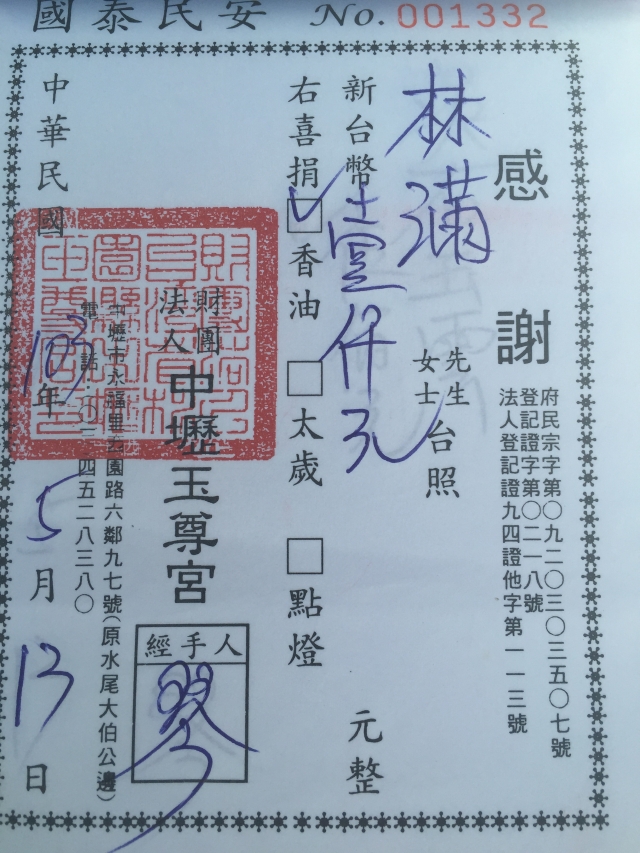 國泰民安 No. 001332
感謝
府民宗字第〇九二〇三〇三五〇七號
登記證字第〇二一八號
法人登記證九四證他字第一一三號
林滿 先生 女士 台照
新台幣壹仟元 元整
右喜捐 ✓ 香油 □ 太歲 □ 點燈
財團法人中壢玉尊宮
經手人
中壢市永福里
園路六鄰九七號(原水尾大伯公邊)
電話
四五二八三八〇
中華民國103年5月13日